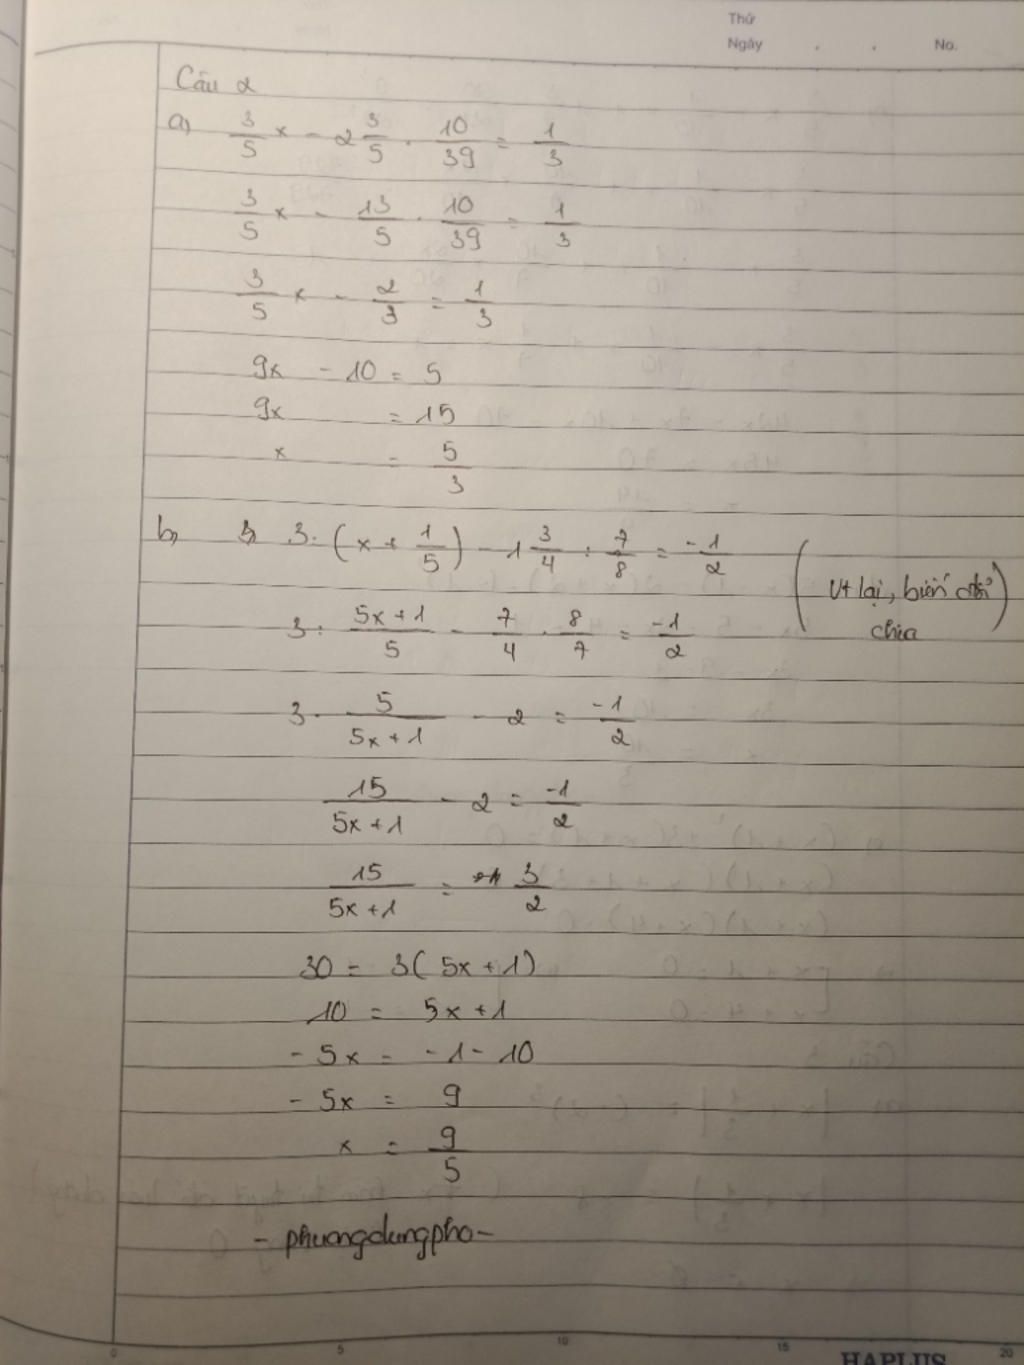 Thứ
Ngày . . No.
Câu 2
a) 3/5 x - 2 3/5 . 10/39 = 1/3
3/5 x - 13/5 . 10/39 = 1/3
3/5 x - 2/3 = 1/3
9x - 10 = 5
9x = 15
x = 5/3
b, 3 : (x + 1/5) - 1 3/4 : 7/8 = -1/2
(Vt lại, biến đổi chia)
3 : (5x+1)/5 - 7/4 . 8/7 = -1/2
3 . 5/(5x+1) - 2 = -1/2
15/(5x+1) - 2 = -1/2
15/(5x+1) = 3/2
30 = 3(5x+1)
10 = 5x+1
-5x = -1 - 10
-5x = 9
x = 9/5
- phuongdungpho -
0 5 10 15 20
HAPLUS